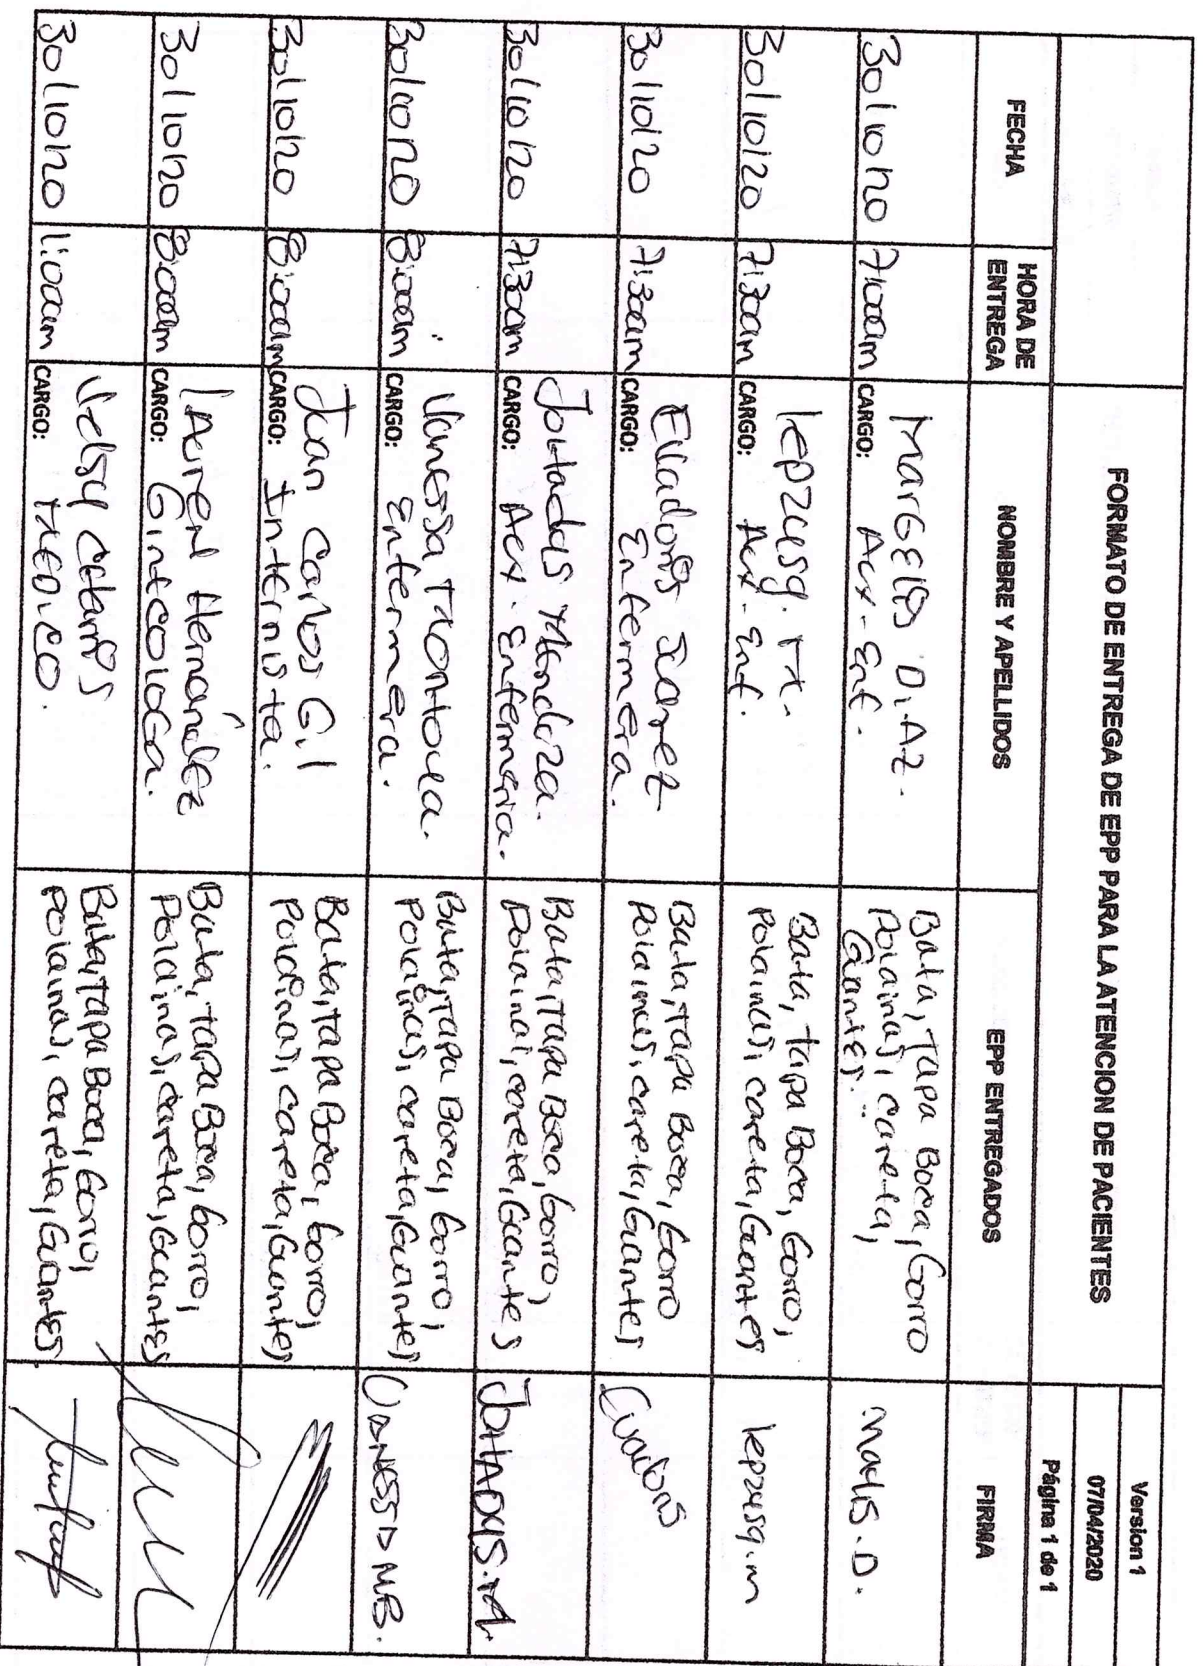 FORMATO DE ENTREGA DE EPP PARA LA ATENCION DE PACIENTES
Version 1
07/04/2020
Página 1 de 1
FECHA
HORA DE
ENTREGA
NOMBRE Y APELLIDOS
EPP ENTREGADOS
FIRMA
30/10/20
7:00am
CARGO: Aux-Enf.
Bata, Tapa Boca, Gorro
Polainas, careta,
Guantes.
30/10/20
7:30am
CARGO: Aux-Enf.
Bata, tapa Boca, Gorro,
Polainas, careta, Guantes
30/10/20
7:30am
CARGO: Enfermera.
Bata, Tapa Boca, Gorro
Polainas, careta, Guantes
30/10/20
7:30am
Mendoza.
CARGO: Aux. Enfermeria.
Bata, Tapa Boca, Gorro,
Polainas, careta, Guantes
30/10/20
8:00am
Vanessa Montoya.
CARGO: Enfermera.
Bata, Tapa Boca, Gorro,
Polainas, careta, Guantes
VANESSA MB.
30/10/20
8:00am
Juan Carlos Gil
CARGO: Internista.
Bata, Tapa Boca, Gorro,
Polainas, careta, Guantes
30/10/20
8:00am
Hernández
CARGO: Ginecologa.
Bata, Tapa Boca, Gorro,
Polainas, careta, Guantes
30/10/20
CARGO: MEDICO.
Bata, Tapa Boca, Gorro,
Polainas, careta, Guantes.